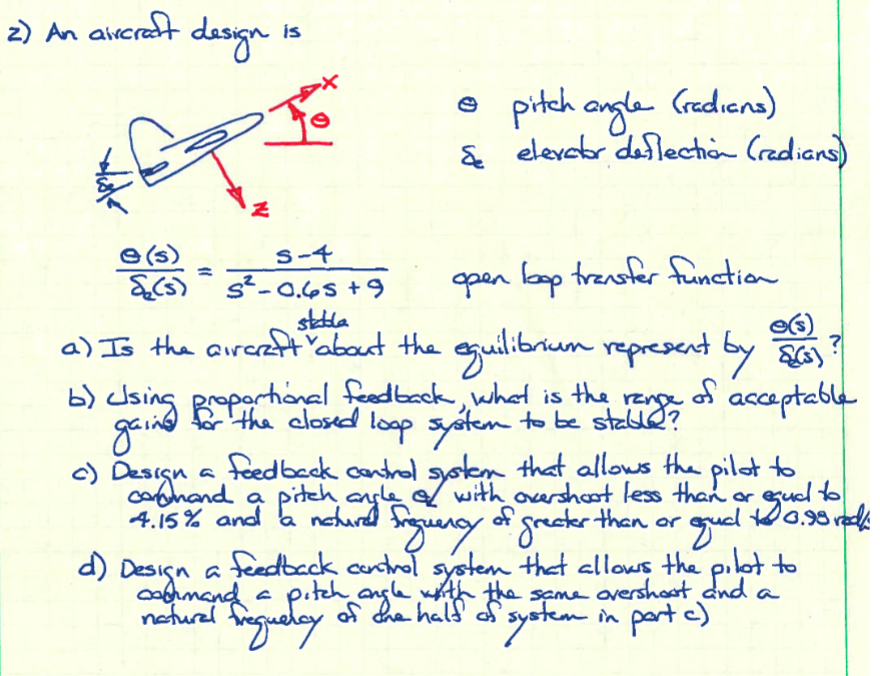 2) An aircraft design is
X
θ
θ pitch angle (radians)
δe elevator deflection (radians)
δe
Z
θ(s) / δe(s) = s-4 / s² - 0.6s + 9 open loop transfer function
a) Is the aircraft stable about the equilibrium represent by θ(s) / δe(s) ?
b) Using proportional feedback, what is the range of acceptable
gains for the closed loop system to be stable?
c) Design a feedback control system that allows the pilot to
command a pitch angle with overshoot less than or equal to
4.15% and a natural frequency of greater than or equal to 0.98
d) Design a feedback control system that allows the pilot to
command a pitch angle with the same overshoot and a
natural frequency of one half of system in part c)